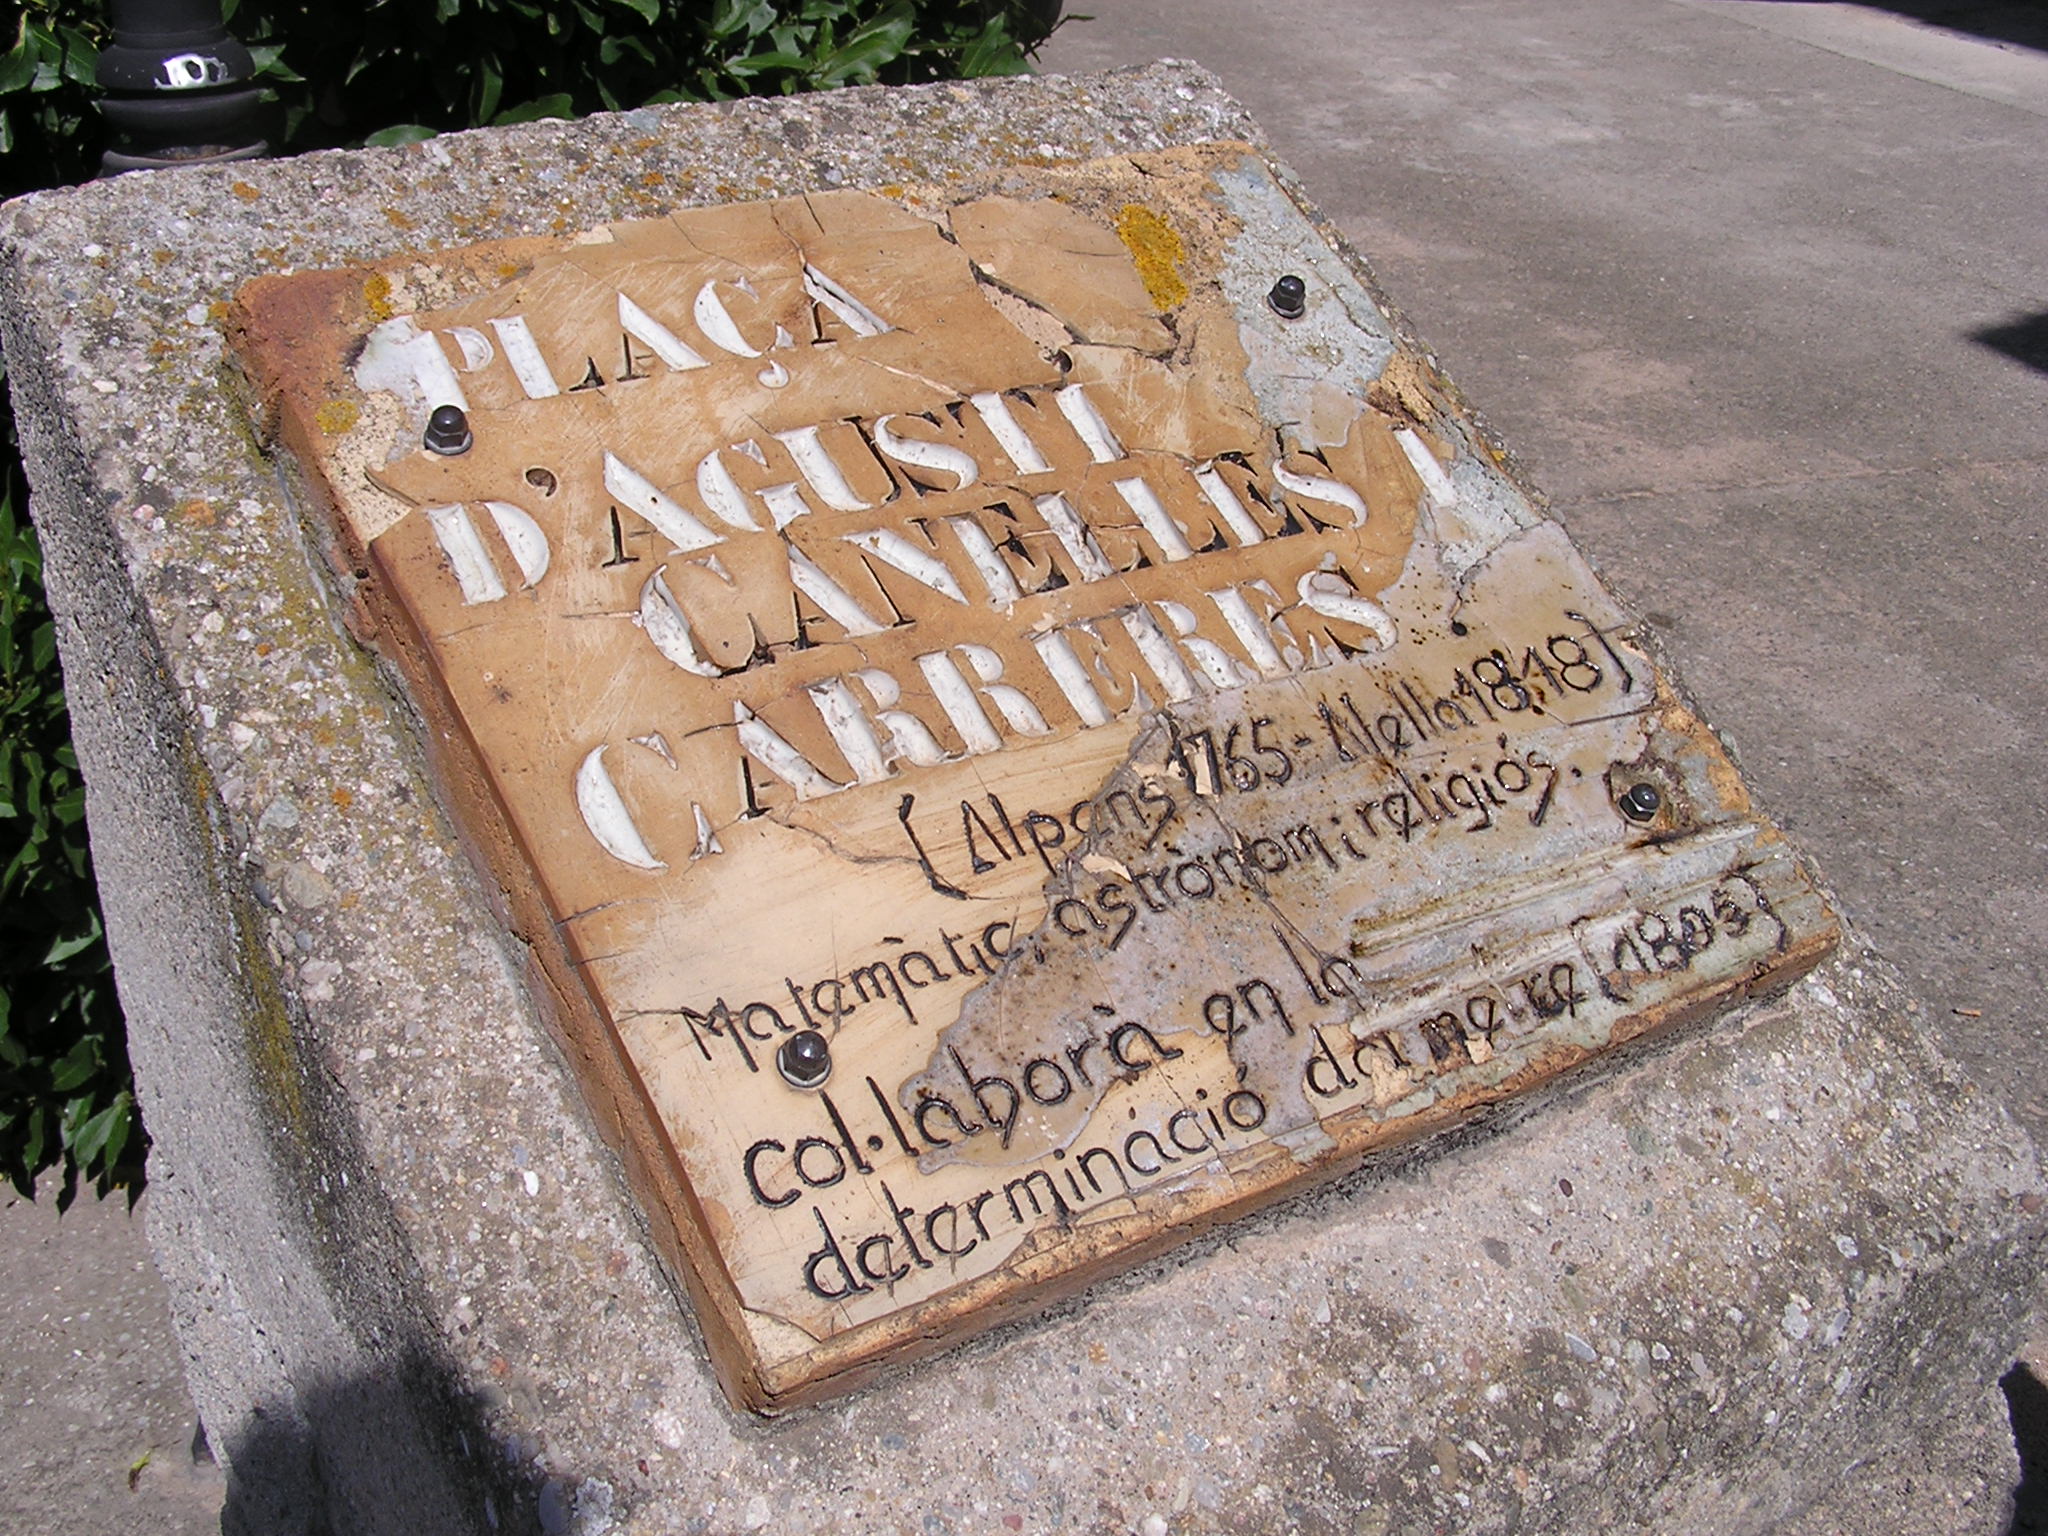 PLAÇA
D'AGUSTÍ
CANELLES I
CARRERES
(Alpens 1765-Alella 1818)
Matemàtic, astrònom i religiós.
col·laborà en la
determinació del metre (1803)